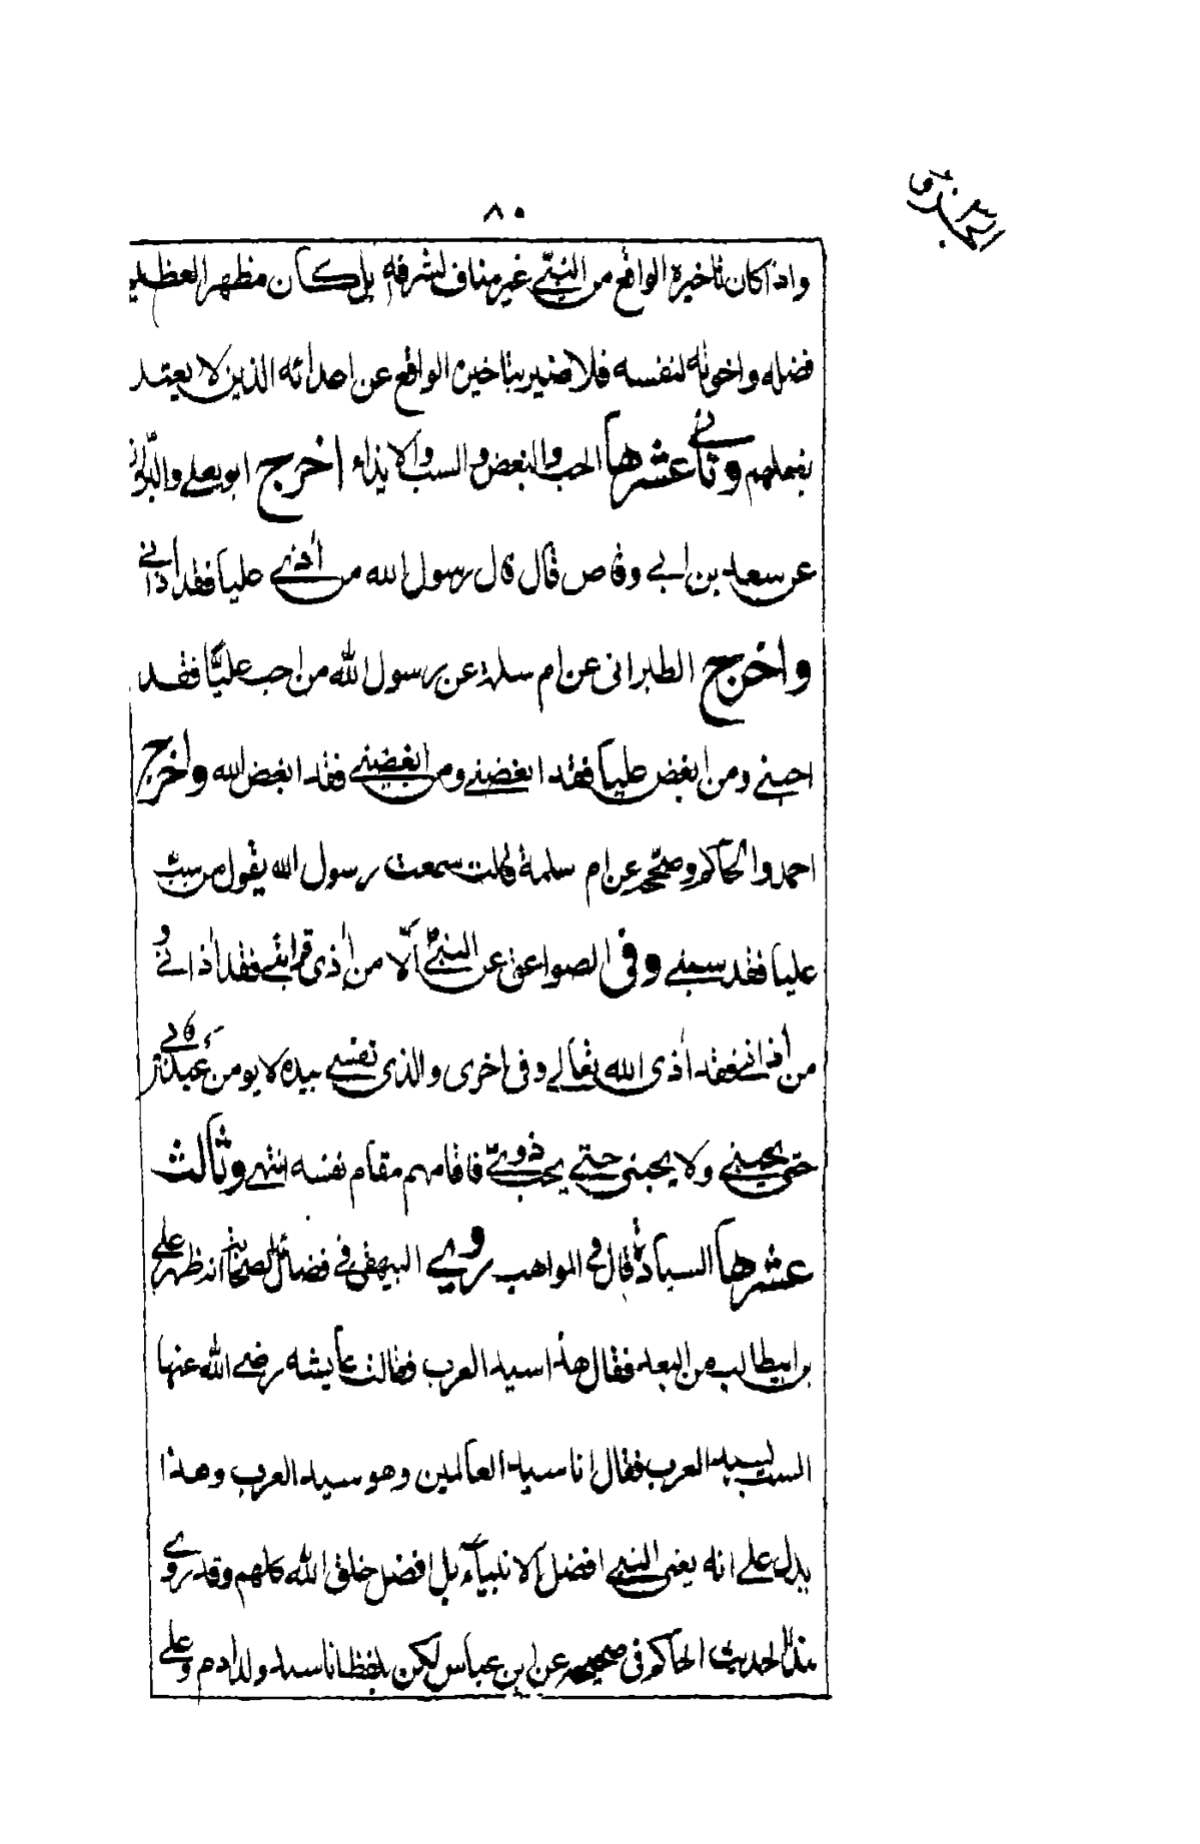 ٨٠
واذا كان تاخيره الواقع من النبي غير مناف لشرفه بل كان مظهرا لعظيم
فضله واخوته لنفسه فلا ضير بتاخيره الواقع عن اعدائه الذين لا يعتد
بفعلهم وثاني عشرها الحب والبغض والسب والايذاء اخرج ابو يعلى والبزار
عن سعد بن ابي وقاص قال قال رسول الله من أذى عليا فقد أذاني
واخرج الطبراني عن ام سلمة عن رسول الله من احب عليًّا فقد
احبني ومن ابغض عليا فقد ابغضني ومن ابغضني فقد ابغض الله واخرج
احمد والحاكم وصححه عن ام سلمة قالت سمعت رسول الله يقول من سبّ
عليا فقد سبني وفي الصواعق عن النبي ألا من أذى قرابتي فقد أذاني و
من أذاني فقد أذى الله تعالى وفي اخرى والذي نفسي بيده لا يومن عبد بي
حتى يحبني ولا يحبني حتى يحب ذويّ فاقامهم مقام نفسه انتهى وثالث
عشرها السيادة قال في المواهب روى البيهقي في فضائل الصحابة انه ظهر علي
بن ابيطالب من البعد فقال هذا سيد العرب فقالت عايشه رضي الله عنها
الست بسيد العرب فقال انا سيد العالمين وهو سيد العرب وهذا
يدل على انه يعني النبي افضل الانبياء بل افضل خلق الله كلهم وقد روى
هذا الحديث الحاكم في صحيحه عن ابن عباس لكن بلفظ انا سيد ولد ادم وعلي